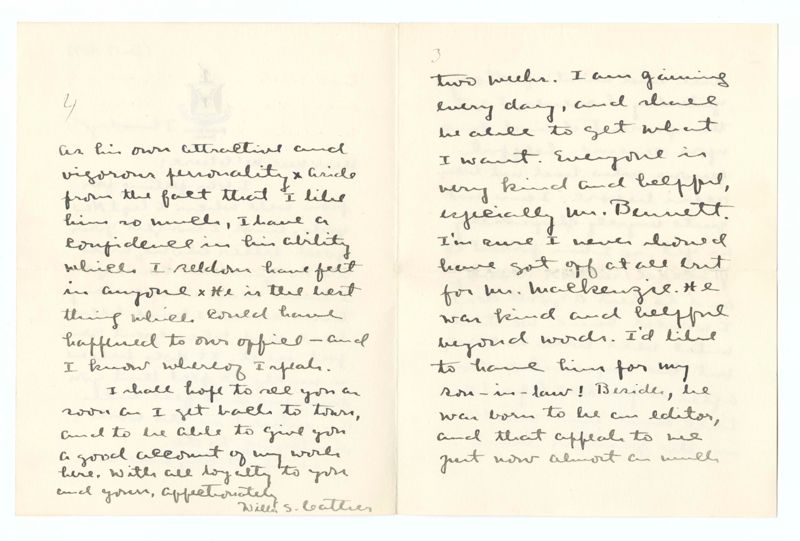 3
two weeks. I am gaining
every day, and shall
be able to get what
I want. Everyone is
very kind and helpful,
especially Mr. Bennett.
I'm sure I never should
have got off at all but
for Mr. MacKenzie. He
was kind and helpful
beyond words. I'd like
to have him for my
son-in-law! Besides, he
was born to be an editor,
and that appeals to me
just now almost as much
4
as his own attractive and
vigorous personality x Aside
from the fact that I like
him so much, I have a
confidence in his ability
which I seldom have felt
in anyone x He is the best
thing which could have
happened to our office — and
I know whereof I speak.
I shall hope to see you as
soon as I get back to town,
and to be able to give you
a good account of my work
here. With all loyalty to you
and yours, affectionately
Willa S. Cather